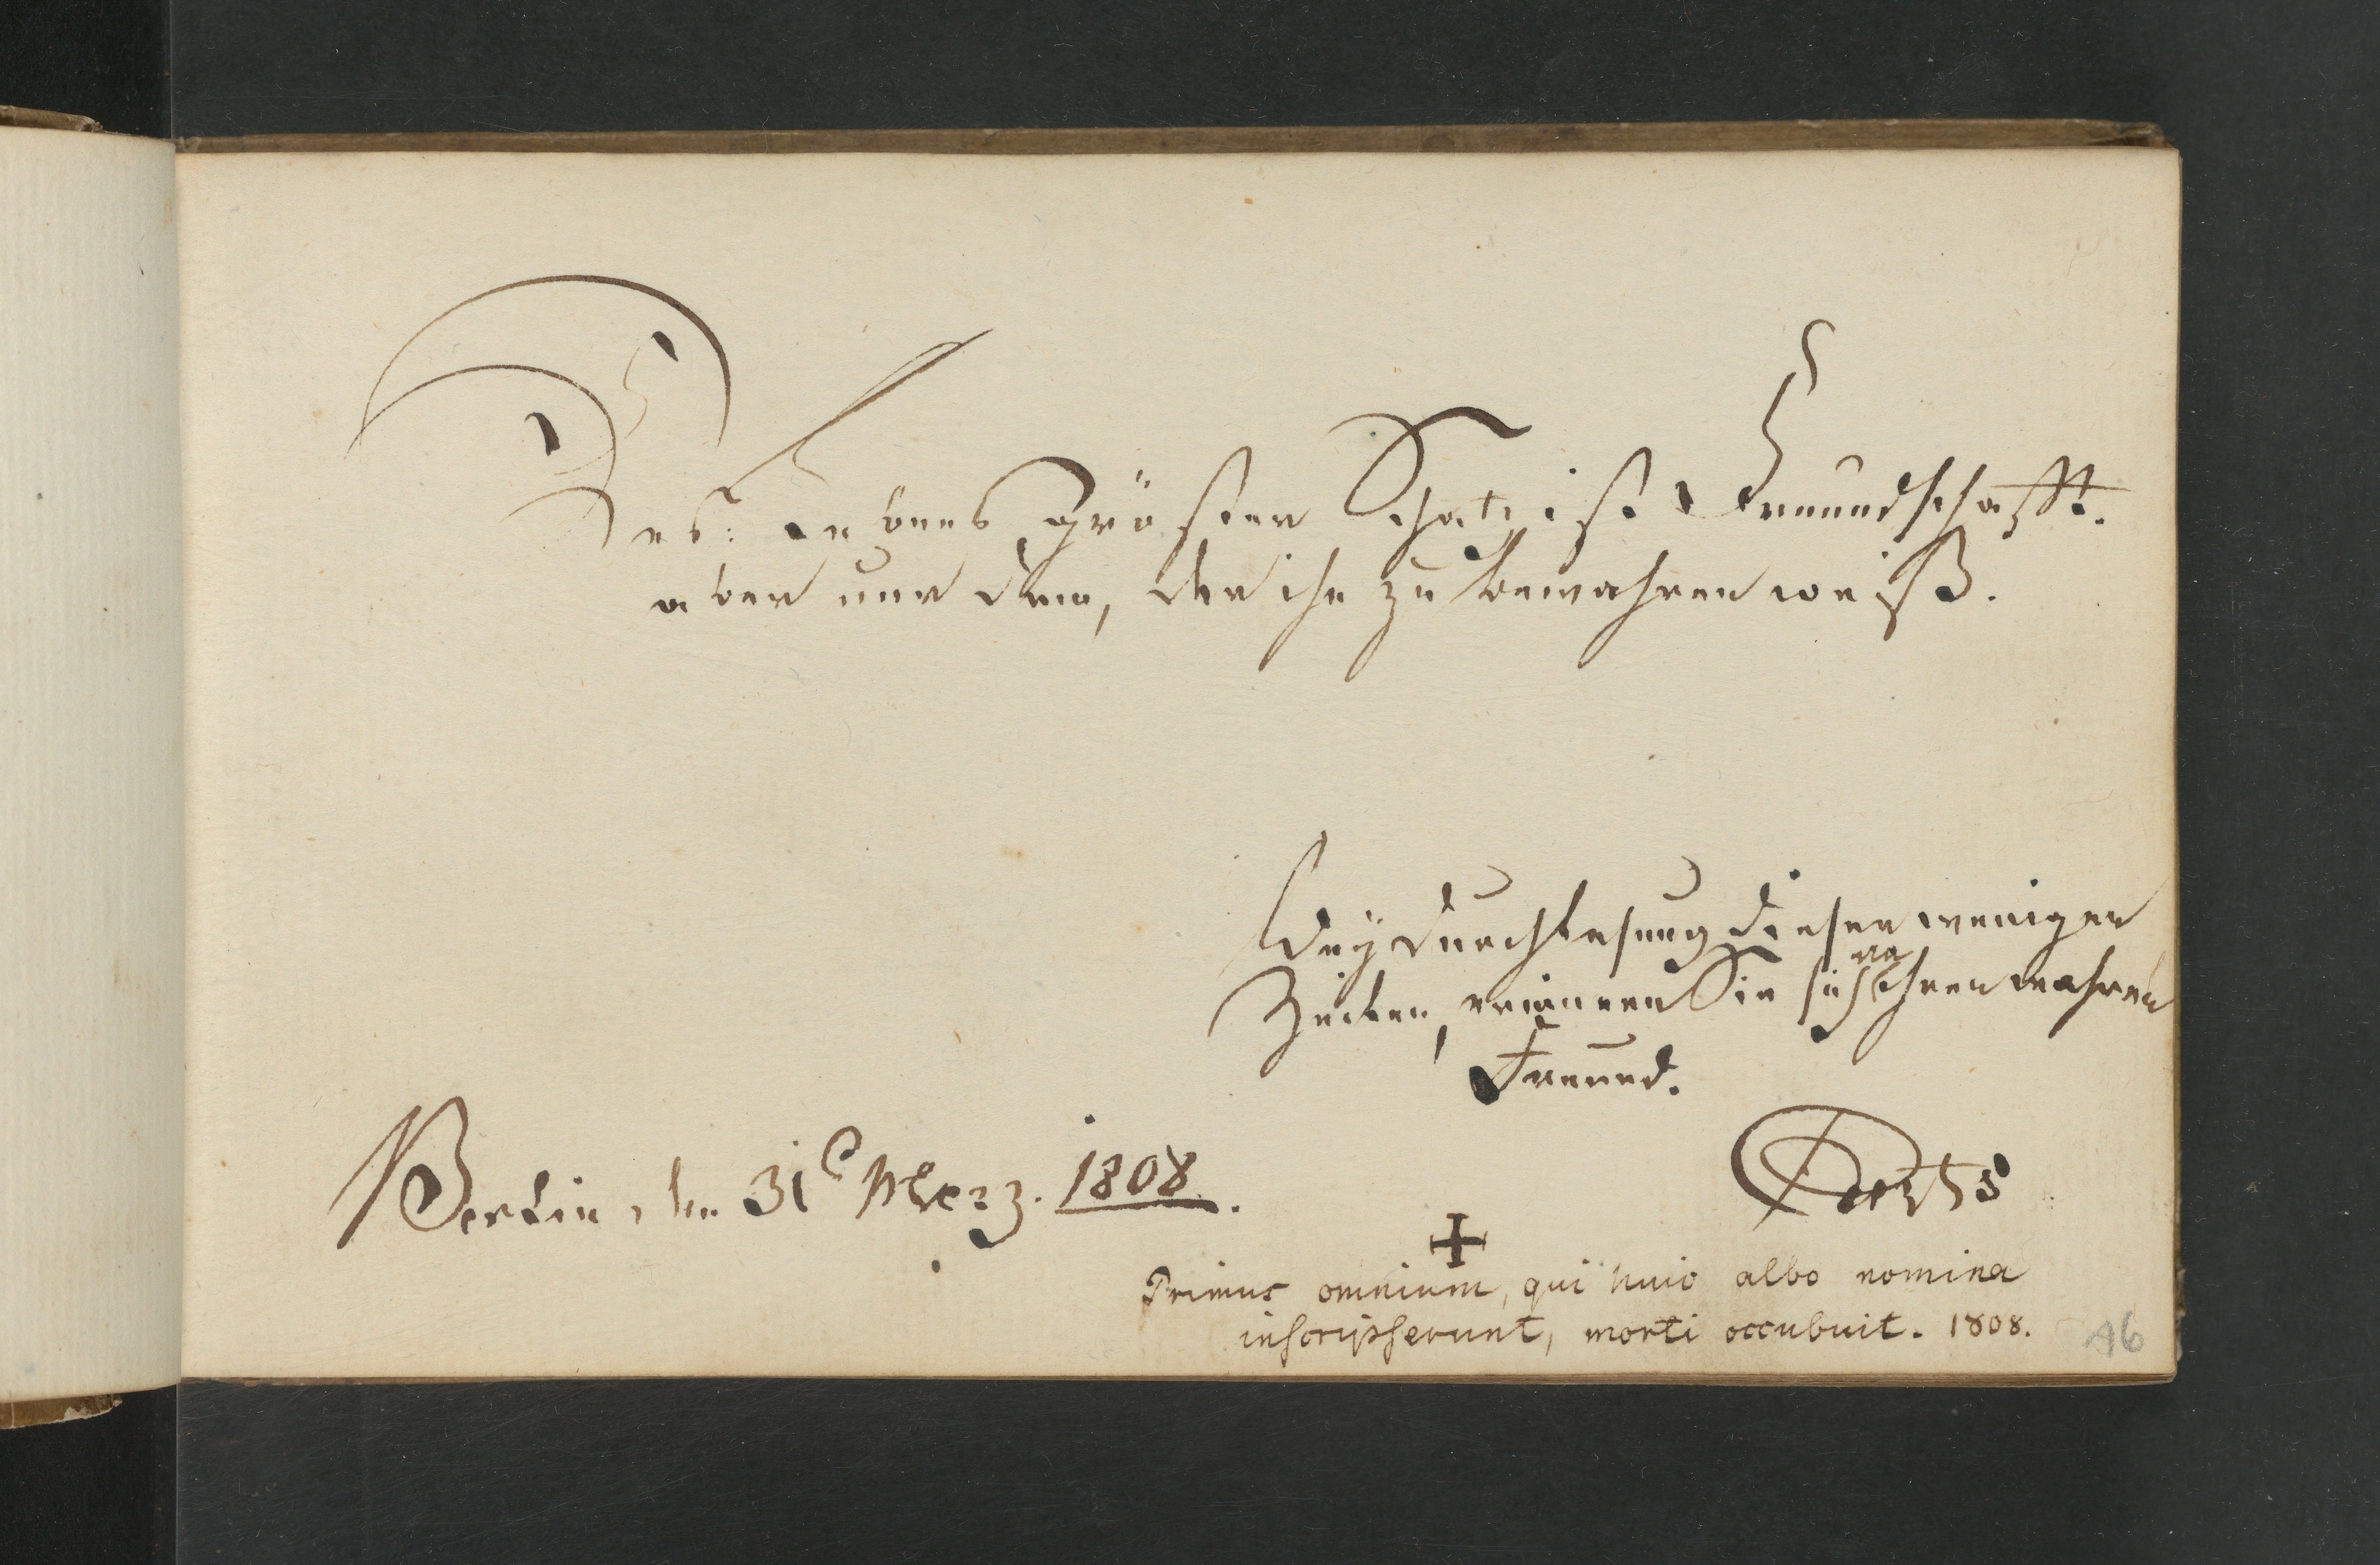 Des Lebens größter Schatz ist Freundschafft.
aber nur dem, der ihn zu bewahren weiß.
Bey Durchlesung dieser wenigen
Zeilen, erinnern Sie sich an Ihren wahren
Freund.
Berlin, den 31t Merz. 1808.
Primus omnium, qui huic albo nomina
inscripserunt, morti occubuit. 1808.
46